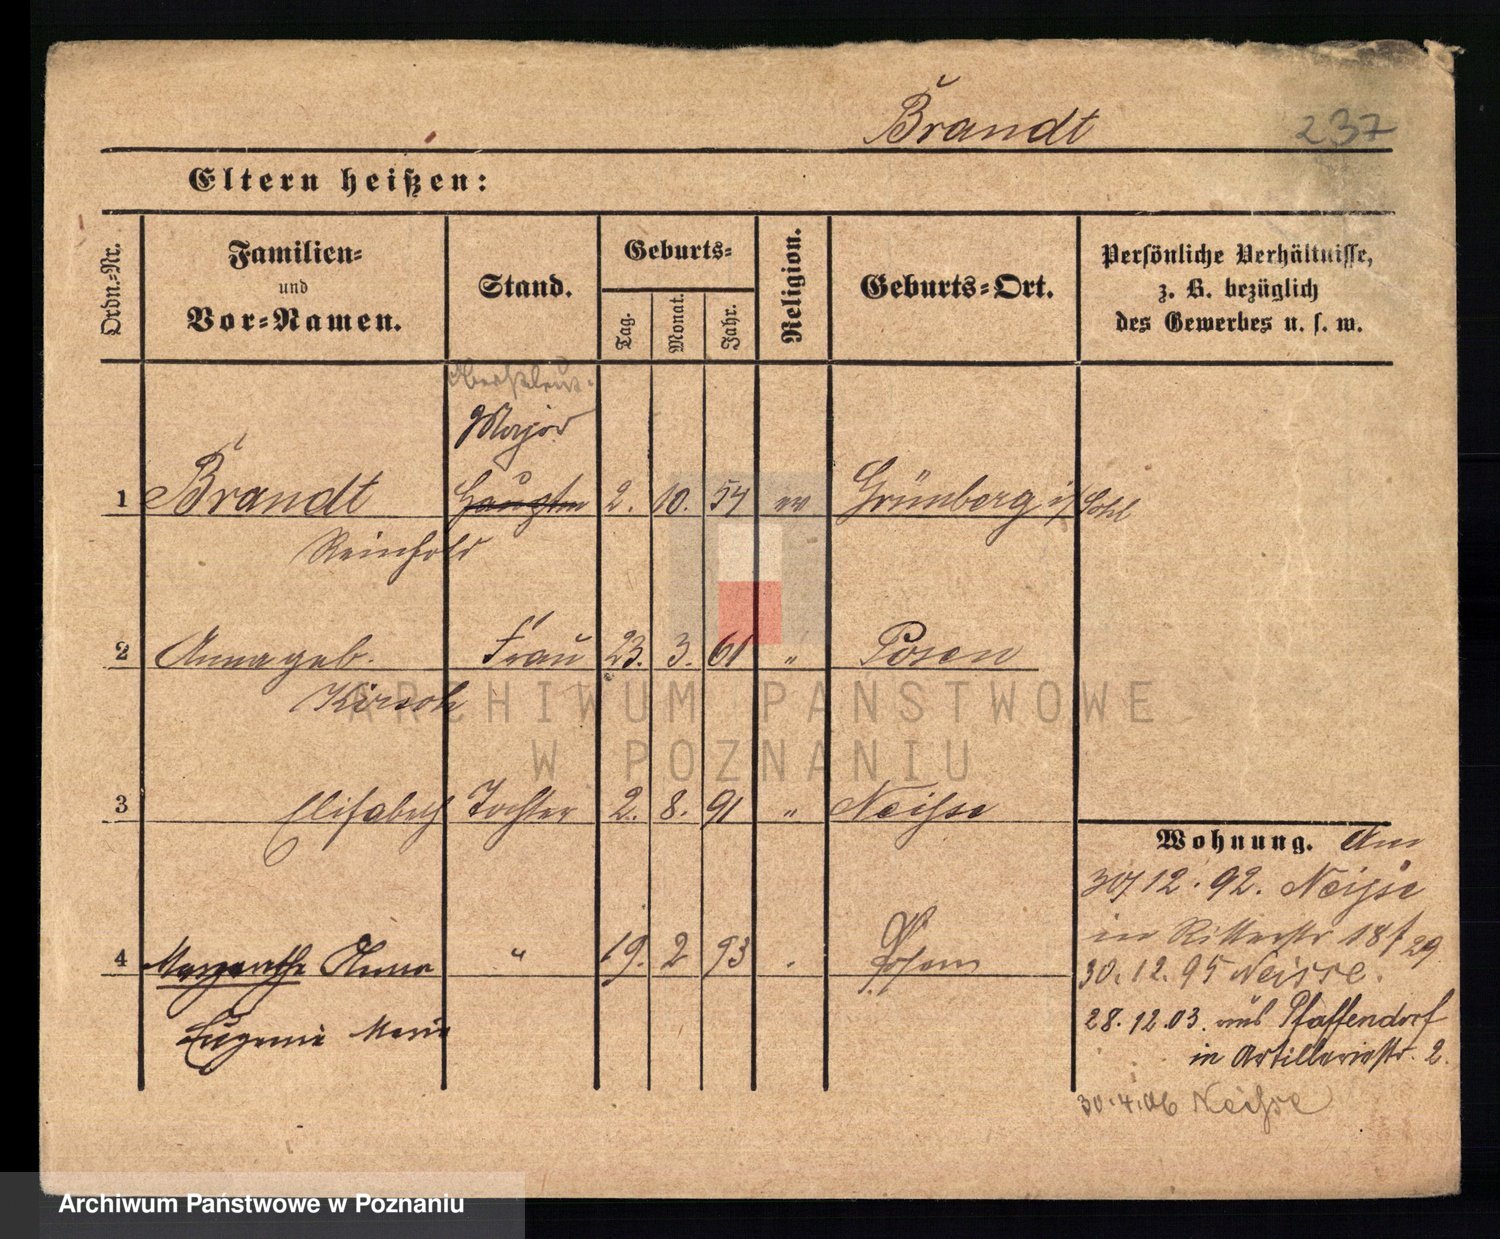 Brandt
237
Eltern heißen:
Ordn.-Nr.
Familien-
und
Vor-Namen.
Stand.
Geburts-
Tag.
Monat.
Jahr.
Religion.
Geburts-Ort.
Persönliche Verhältnisse,
z. B. bezüglich
des Gewerbes u. s. w.
Oberstleut.
Major
1 Brandt Hauptm 2. 10. 54 ev. Grünberg i/Schl
Reinhold
2 Anna geb. Frau 23. 3. 61 " Posen
Kirsch
3 Elisabeth Tochter 2. 8. 91 " Neisse
4 Margarethe Anna " 19. 2 93 . Posen
Eugenie Marie
Wohnung. Am
30/12.92. Neisse
in Ritterstr 18
29
30.12.95 Neisse.
28.12.03. aus Pfaffendorf
in Artilleriestr. 2.
30.4.06 Neisse
ARCHIWUM PAŃSTWOWE
W POZNANIU
Archiwum Państwowe w Poznaniu